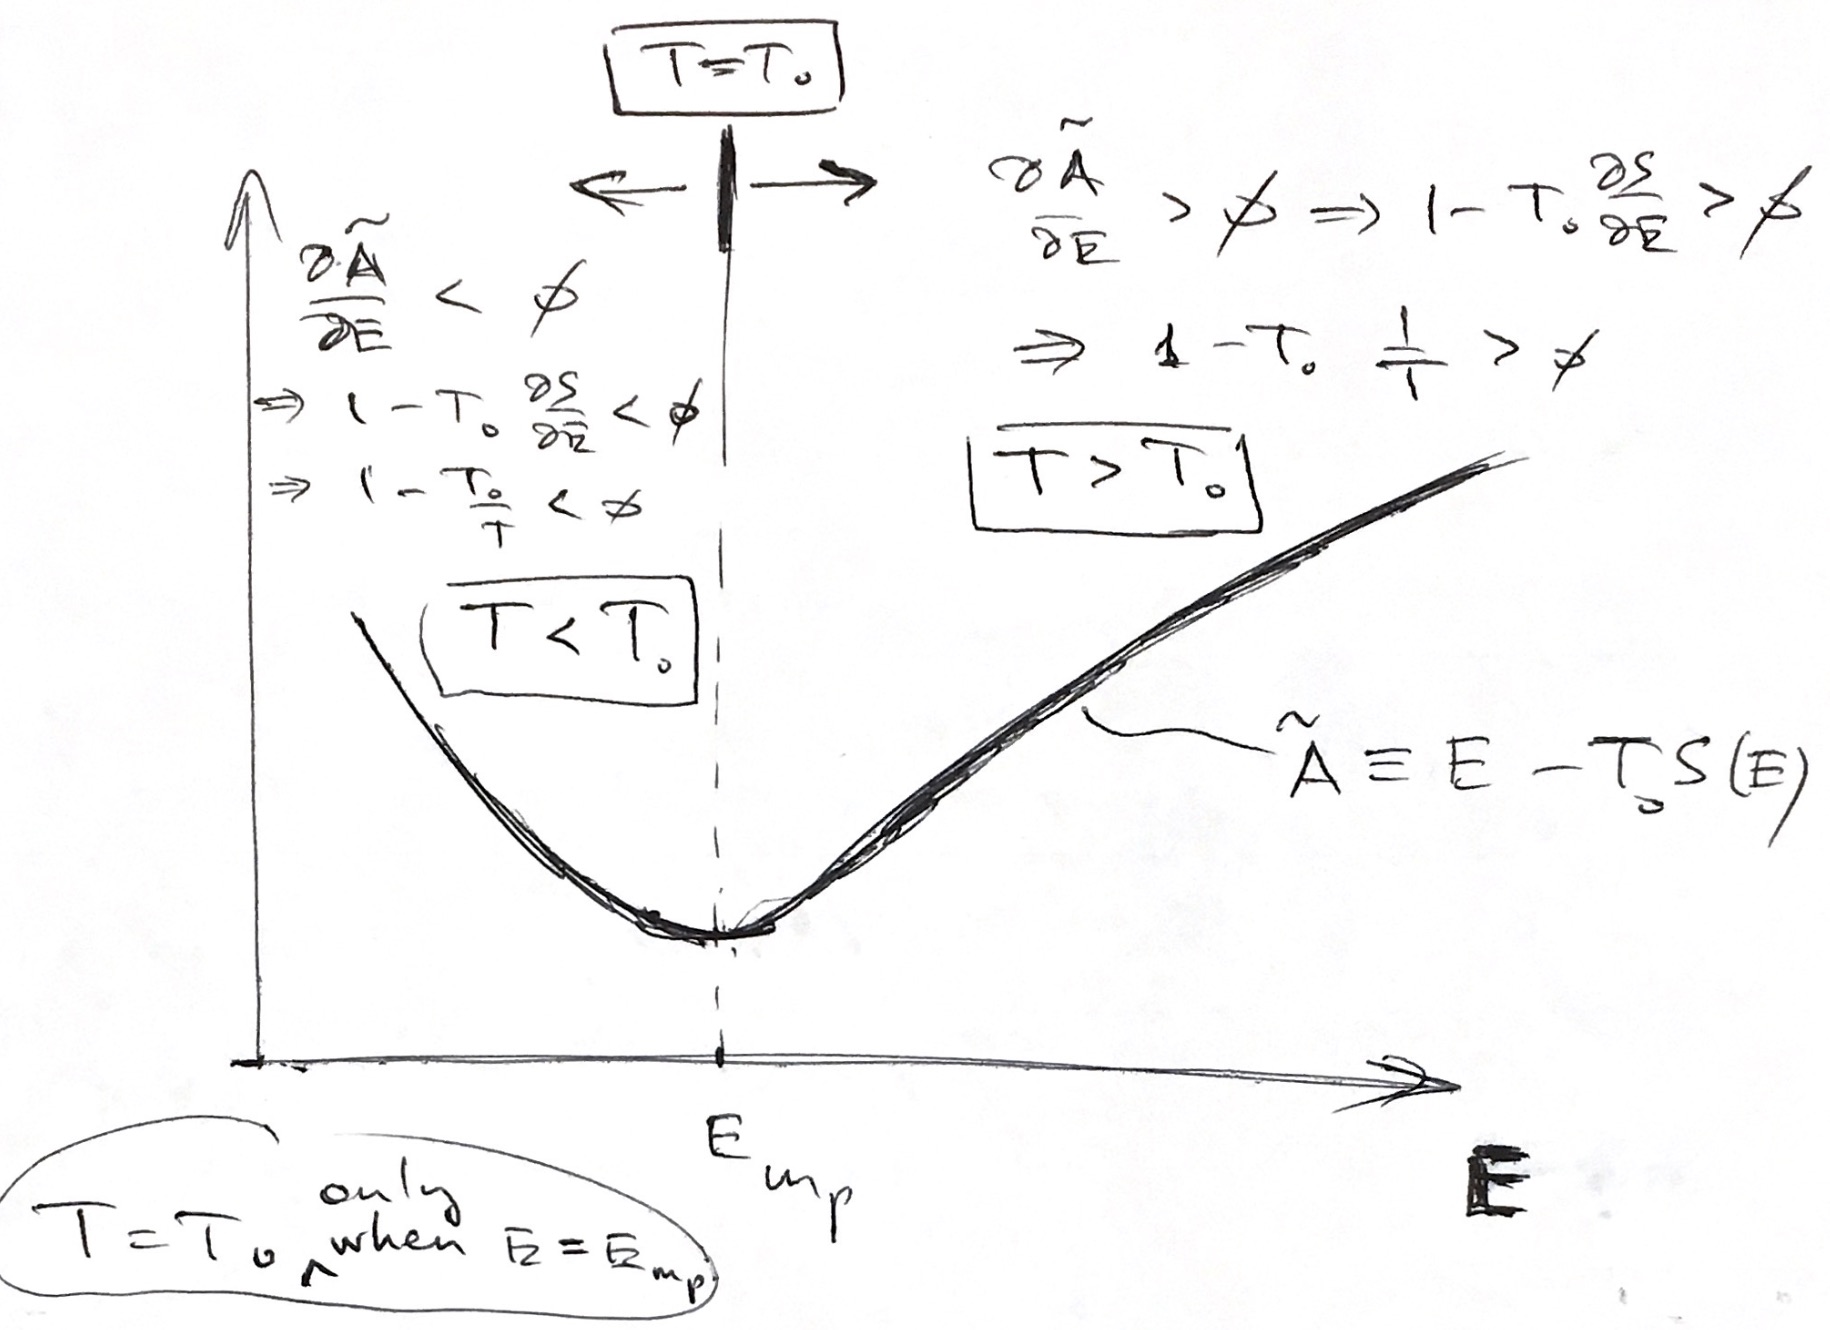 T=T₀
∂Ã/∂E < ∅
⇒ 1 - T₀ ∂S/∂E < ∅
⇒ 1 - T₀/T < ∅
T < T₀
∂Ã/∂E > ∅ ⇒ 1 - T₀ ∂S/∂E > ∅
⇒ 1 - T₀ 1/T > ∅
T > T₀
Ã ≡ E - T₀S(E)
E_mp
E
T = T₀ ‸only when E = E_mp